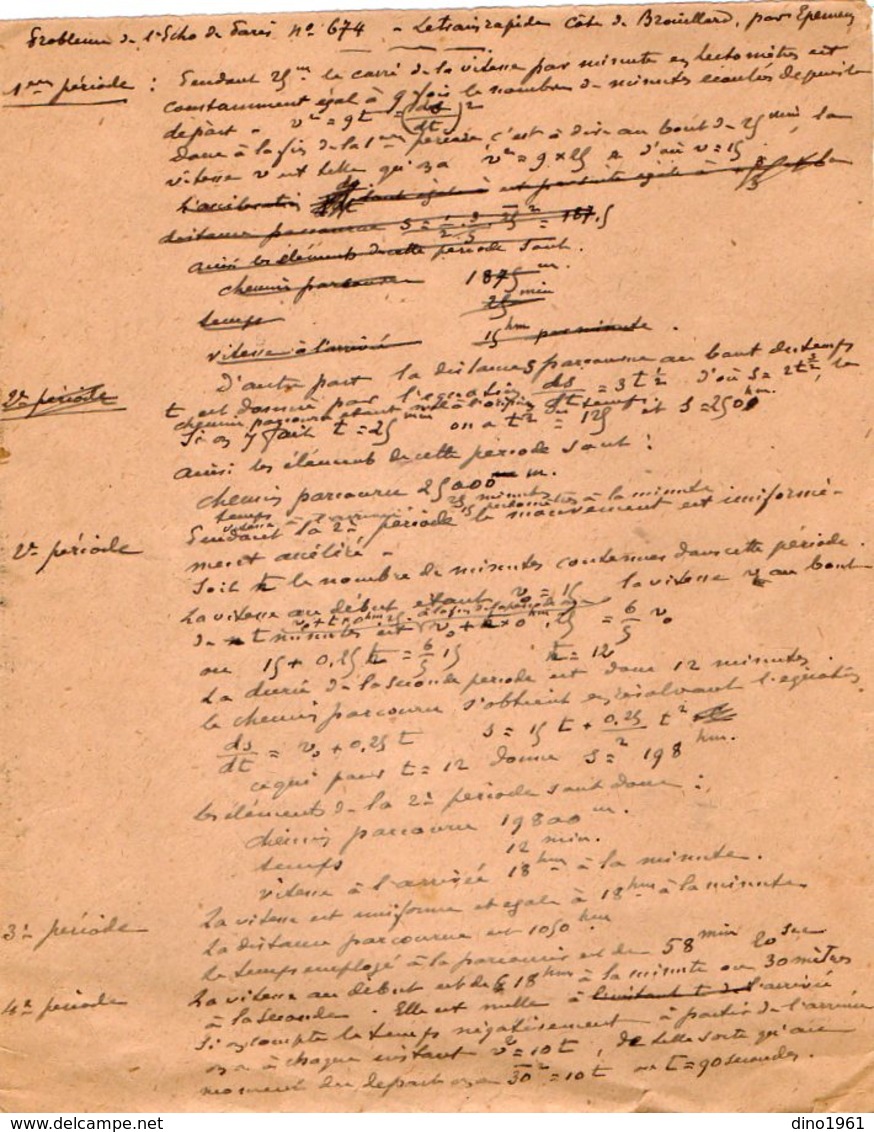 Problème de l'Echo de Paris n° 674 - Le train rapide Côte de Brouillard, par Epernay
1ère période : Pendant 25 m le carré de la vitesse par minute en hectomètres est
constamment égal à 9 fois le nombre de minutes écoulées depuis le
départ. v² = 9t = (ds/dt)²
Donc à la fin de la 1ère période c'est à dire au bout de 25 min, la
vitesse v est telle qu'on a v² = 9 x 25 d'où v = 15
L'accélération est constante égale à
distance parcourue s = 1/2 . 3/5 . 25² = 187,5
ainsi les éléments de cette période sont.
chemin parcouru 1875 m.
temps 25 min
vitesse à l'arrivée 15 hm par minute.
D'autre part la distance s parcourue au bout du temps
2e période
t est donné par l'équation ds/dt = 3t^1/2 d'où s = 2t^3/2, le
chemin parcouru étant nul à l'origine du temps
Si on y fait t = 25 min on a t^3/2 = 125 et s = 250 hm.
ainsi les éléments de cette période sont :
chemin parcouru 25000 m.
temps 25 minutes
vitesse à l'arrivée 15 hectomètres à la minute
2e période Pendant la 2e période le mouvement est uniformé-
ment accéléré -
Soit t le nombre de minutes contenues dans cette période.
La vitesse au début étant v₀ = 15 la vitesse v au bout
v₀ + t x 0 hm,25. à la fin de la période on a
de t minutes est v₀ + t x 0 hm,25 = 6/5 v₀
ou 15 + 0,25 t = 6/5 15 t = 12
La durée de la seconde période est donc 12 minutes
le chemin parcouru s'obtient en résolvant l'équation
ds/dt = v₀ + 0,25 t s = 15 t + 0,25/2 t²
ce qui pour t = 12 donne s = 198 hm.
les éléments de la 2e période sont donc :
chemin parcouru 19800 m.
temps 12 min.
vitesse à l'arrivée 18 hm à la minute.
3e période La vitesse est uniforme et égale à 18 hm à la minute
La distance parcourue est 1050 hm
le temps employé à la parcourir est de 58 min 20 sec
4e période La vitesse au début est de 18 hm à la minute ou 30 mètres
à la seconde. Elle est nulle à l'instant t de l'arrivée
Si on compte le temps négativement à partir de l'arrivée
on a à chaque instant v² = 10t, de telle sorte qu'au
moment du départ on a 30² = 10t ou t = 90 secondes.
dino1961